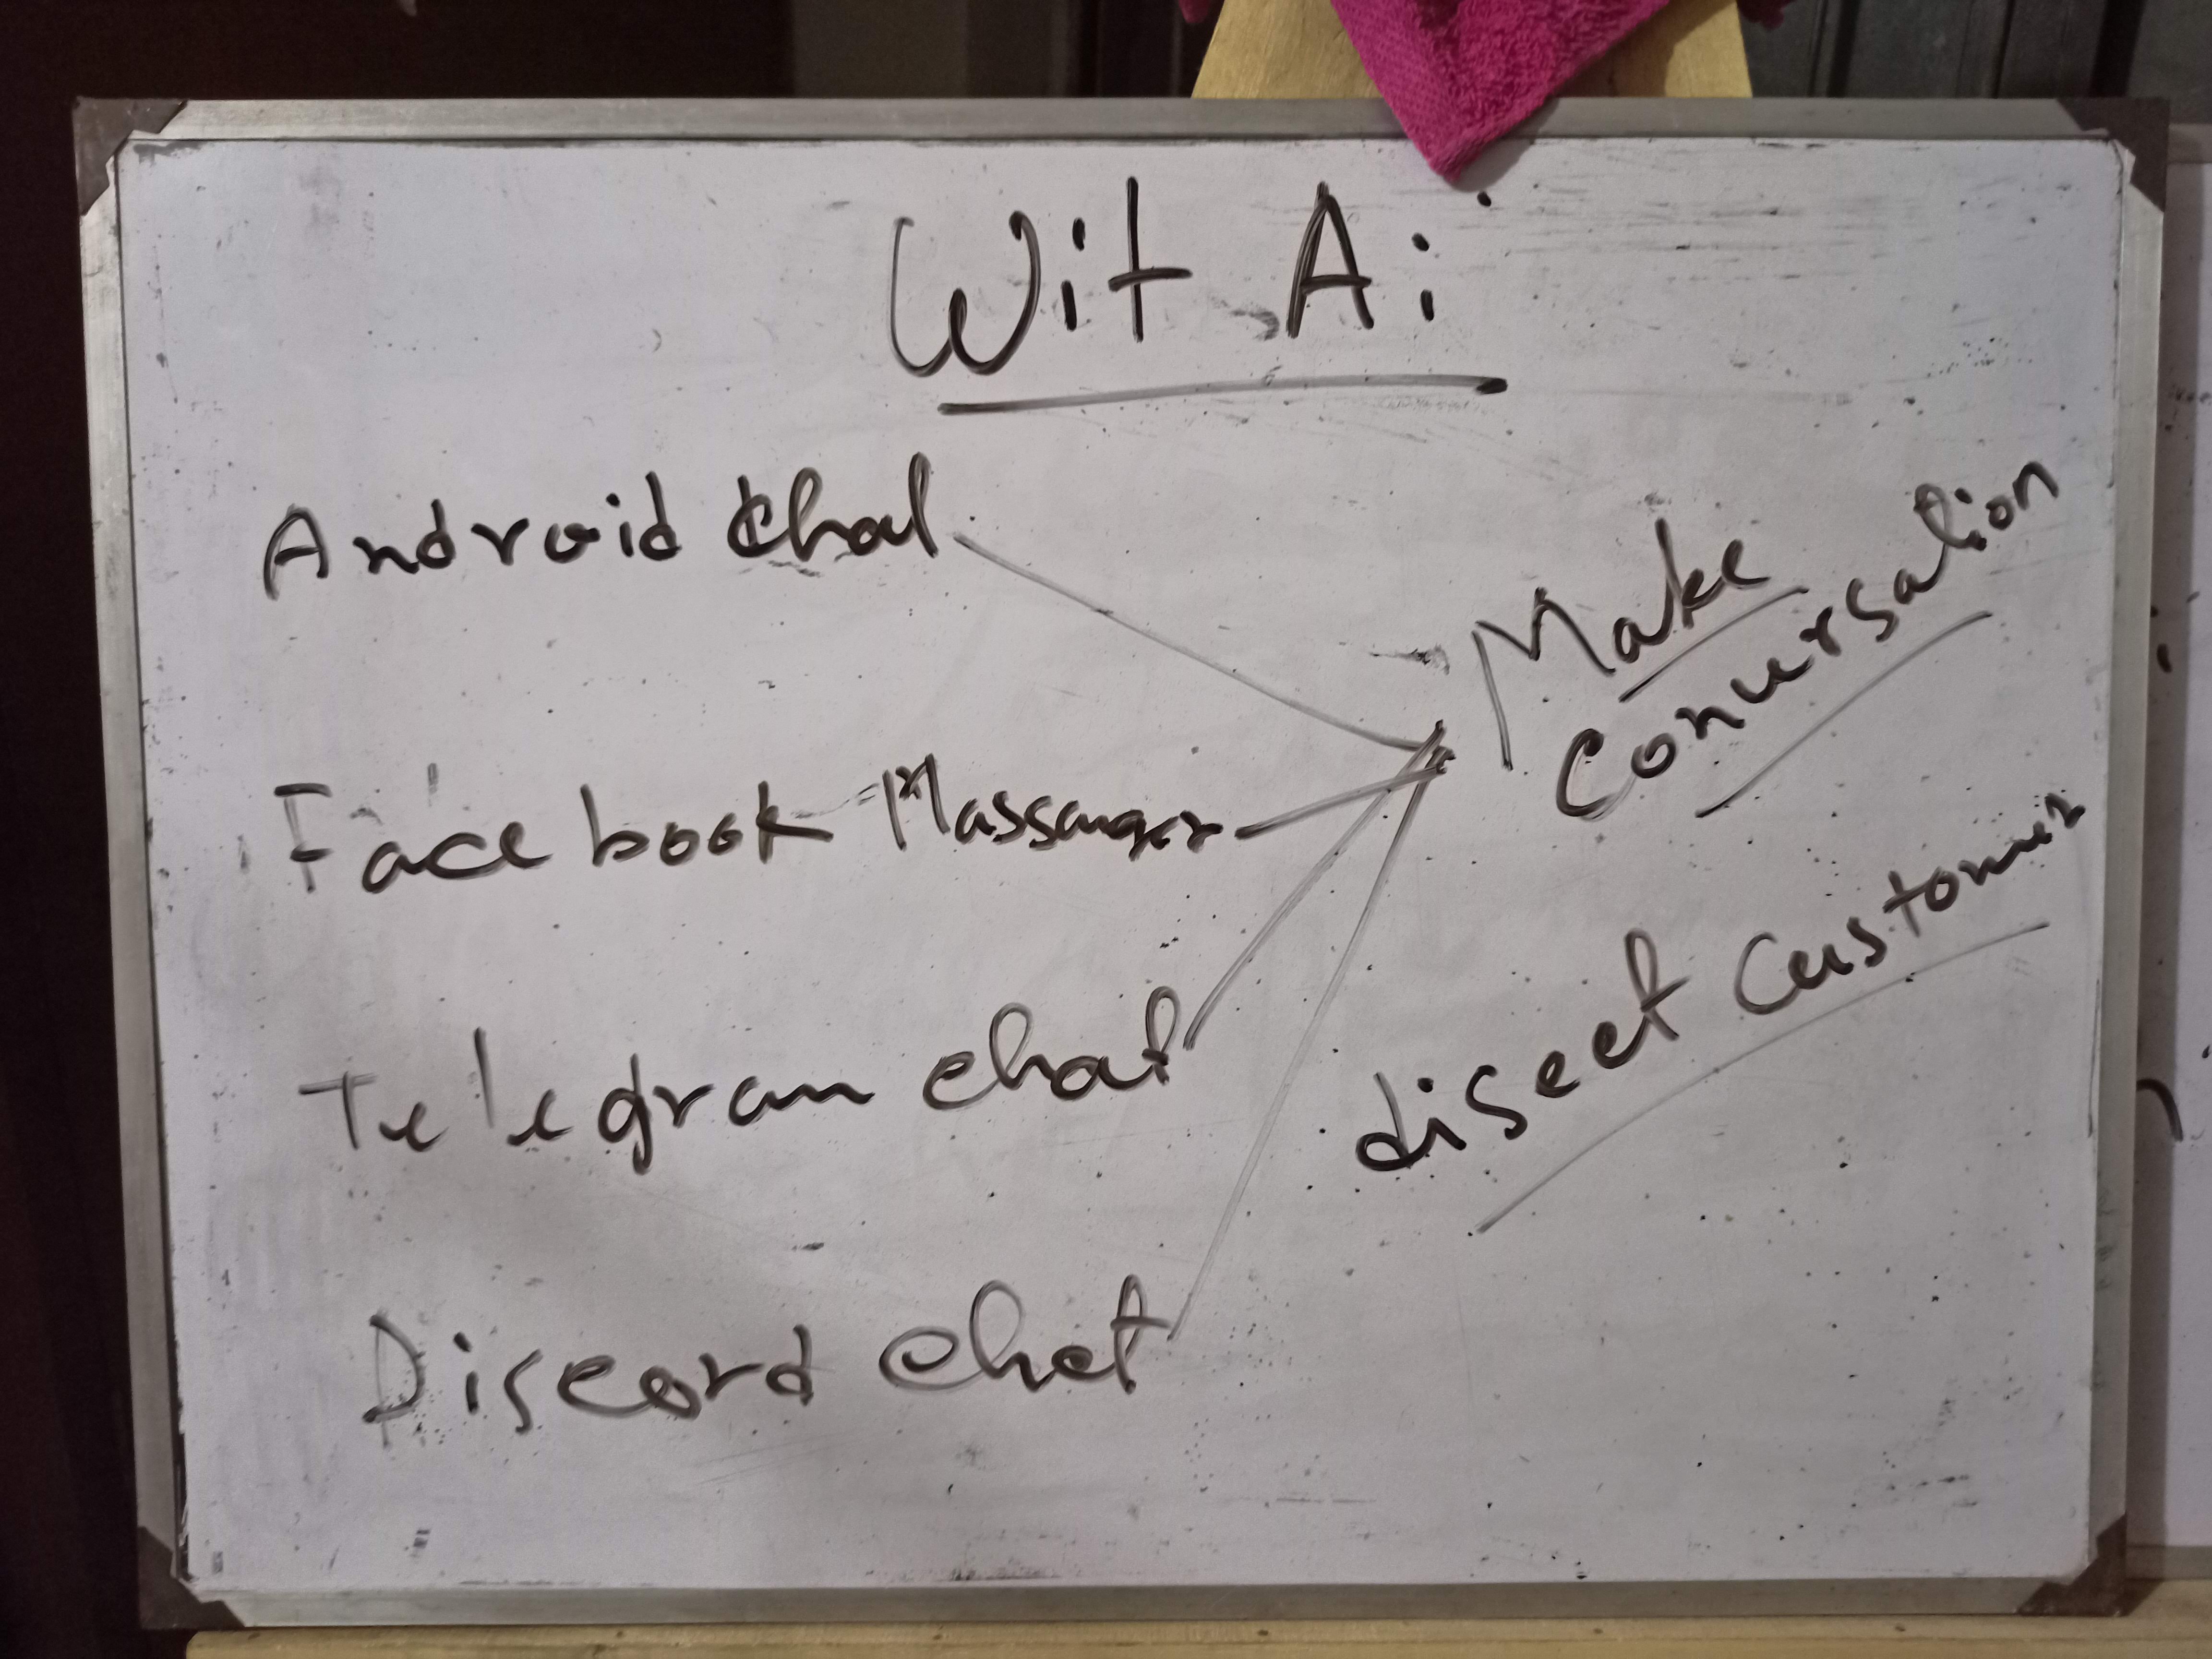 Wit Ai
Android Chat
Facebook Massanger
Telegram chat
Discord chet
Make
Conursation
disect Customer